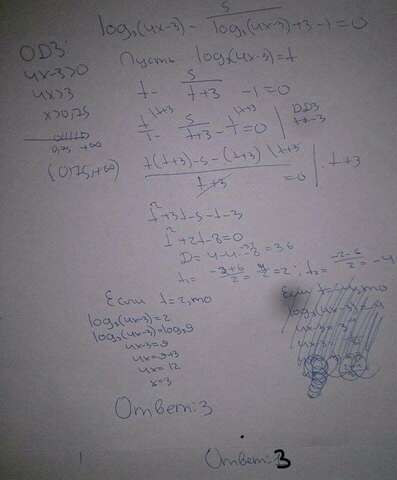 log₃(4x-3) - 5/(log₃(4x-3)+3) - 1 = 0
ОДЗ:
4x-3>0
4x>3
x>0,75
0,75 +∞
(0,75;+∞)
Пусть log₃(4x-3)=t
t - 5/(t+3) - 1 = 0
t/1 - 5/(t+3) - 1/1 = 0 | ОДЗ t≠-3
(t(t+3)-5-(t+3))/(t+3) = 0 | · t+3
t²+3t-5-t-3
t²+2t-8=0
D=4-4·-8=36
t₁= (-2+6)/2 = 4/2 = 2; t₂= (-2-6)/2 = -4
Если t=2, то
log₃(4x-3)=2
log₃(4x-3)=log₃9
4x-3=9
4x=9+3
4x=12
x=3
Ответ: 3
Ответ: 3